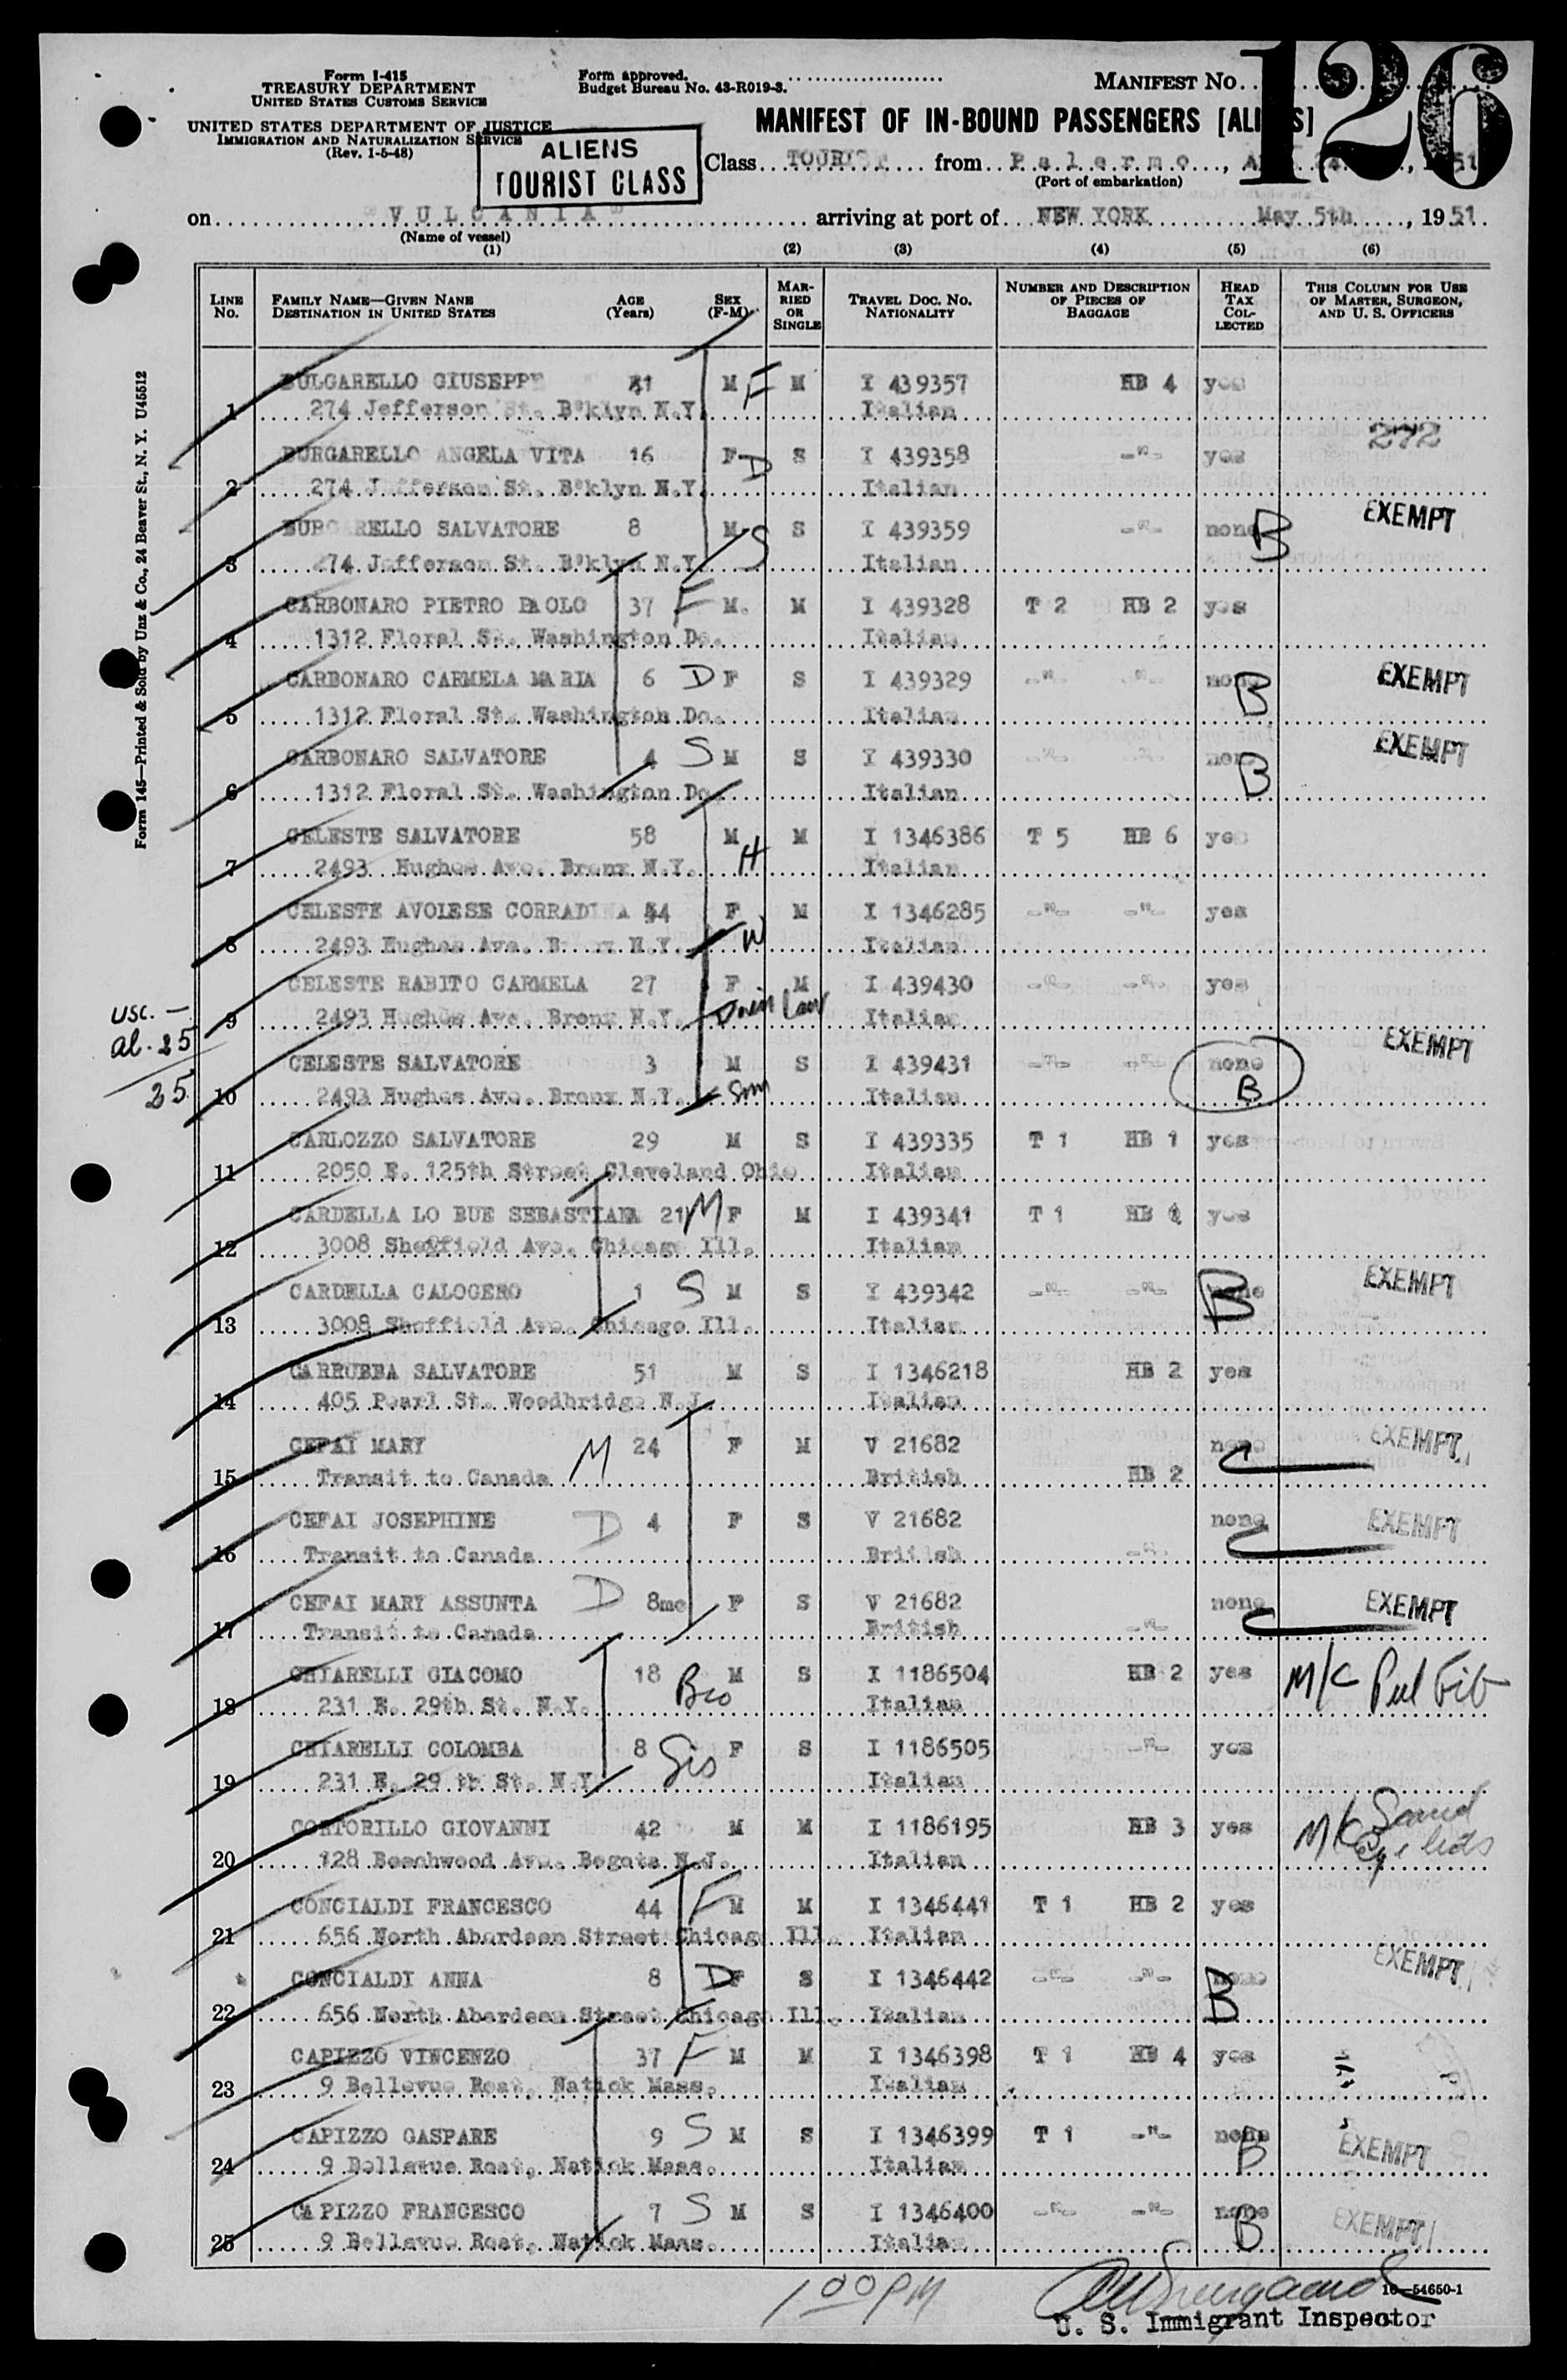 Form I-415
TREASURY DEPARTMENT
UNITED STATES CUSTOMS SERVICE
UNITED STATES DEPARTMENT OF JUSTICE
IMMIGRATION AND NATURALIZATION SERVICE
(Rev. 1-5-48)
Form approved.
Budget Bureau No. 43-R019-3.
MANIFEST NO.
126
MANIFEST OF IN-BOUND PASSENGERS [ALIENS]
ALIENS
TOURIST CLASS
Class TOURIST from Palermo, 51
(Port of embarkation)
on "VULCANIA" arriving at port of NEW YORK May 5th, 1951
(Name of vessel)
(1) (2) (3) (4) (5) (6)
LINE No. FAMILY NAME—GIVEN NAME DESTINATION IN UNITED STATES AGE (Years) SEX (F-M) MARRIED OR SINGLE TRAVEL DOC. NO. NATIONALITY NUMBER AND DESCRIPTION OF PIECES OF BAGGAGE HEAD TAX COLLECTED THIS COLUMN FOR USE OF MASTER, SURGEON, AND U. S. OFFICERS
Form 145—Printed & Sold by Unz & Co., 24 Beaver St., N. Y. U45512
BULGARELLO GIUSEPPE 41 M F M I 439357 HB 4 yes
1 274 Jefferson St. B'klyn N.Y. Italian
272
BURGARELLO ANGELA VITA 16 F D S I 439358 -"- yes
2 274 Jefferson St. B'klyn N.Y. Italian
BURGARELLO SALVATORE 8 M S S I 439359 -"- none B EXEMPT
3 274 Jefferson St. B'klyn N.Y. Italian
CARBONARO PIETRO PAOLO 37 F M. M I 439328 T 2 HB 2 yes
4 1312 Floral St. Washington Dc. Italian
CARBONARO CARMELA MARIA 6 D F S I 439329 -"- -"- none B EXEMPT
5 1312 Floral St. Washington Dc. Italian
CARBONARO SALVATORE 4 S M S I 439330 -"- -"- none B EXEMPT
6 1312 Floral St. Washington Dc. Italian
CELESTE SALVATORE 58 M M I 1346386 T 5 HB 6 yes
7 2493 Hughes Ave. Bronx N.Y. H Italian
CELESTE AVOLESE CORRADINA 54 F M I 1346285 -"- -"- yes
8 2493 Hughes Ave. Bronx N.Y. W Italian
CELESTE RABITO CARMELA 27 F M I 439430 -"- -"- yes
9 2493 Hughes Ave. Bronx N.Y. D in Law Italian
usc. —
al. 25
25
CELESTE SALVATORE 3 M S I 439431 -"- -"- none B EXEMPT
10 2493 Hughes Ave. Bronx N.Y. Italian
CARLOZZO SALVATORE 29 M S I 439335 T 1 HB 1 yes
11 2050 E. 125th Street Cleveland Ohio Italian
CARDELLA LO BUE SEBASTIANA 21 M F M I 439341 T 1 HB 1 yes
12 3008 Sheffield Ave. Chicago Ill. Italian
CARDELLA CALOGERO 1 S M S I 439342 -"- -"- none B EXEMPT
13 3008 Sheffield Ave. Chicago Ill. Italian
CARRUBBA SALVATORE 51 M S I 1346218 HB 2 yes
14 405 Pearl St. Woodbridge N.J. Italian
CEFAI MARY M 24 F M V 21682 none EXEMPT
15 Transit to Canada British HB 2
CEFAI JOSEPHINE D 4 F S V 21682 none EXEMPT
16 Transit to Canada British -"-
CEFAI MARY ASSUNTA D 8mo F S V 21682 none EXEMPT
17 Transit to Canada British -"-
CHIARELLI GIACOMO 18 Bro M S I 1186504 HB 2 yes M/C Pul Fib
18 231 E. 29th St. N.Y. Italian
CHIARELLI COLOMBA 8 Sis F S I 1186505 -"- yes
19 231 E. 29 th St. N.Y. Italian
CORTORILLO GIOVANNI 42 M M I 1186195 HB 3 yes M/C Eye lids
20 128 Beechwood Ave. Bogota N.J. Italian
CONCIALDI FRANCESCO 44 F M M I 1346441 T 1 HB 2 yes
21 656 North Aberdeen Street Chicago Ill. Italian
CONCIALDI ANNA 8 D F S I 1346442 -"- -"- none B EXEMPT
22 656 North Aberdeen Street Chicago Ill. Italian
CAPIZZO VINCENZO 37 F M M I 1346398 T 1 HB 4 yes
23 9 Bellevue Roat, Natick Mass. Italian
CAPIZZO GASPARE 9 S M S I 1346399 T 1 -"- none B EXEMPT
24 9 Bellevue Roat, Natick Mass. Italian
CAPIZZO FRANCESCO 7 S M S I 1346400 -"- -"- none B EXEMPT
25 9 Bellevue Roat, Natick Mass. Italian
1 00 PM
16—54650-1
U. S. Immigrant Inspector